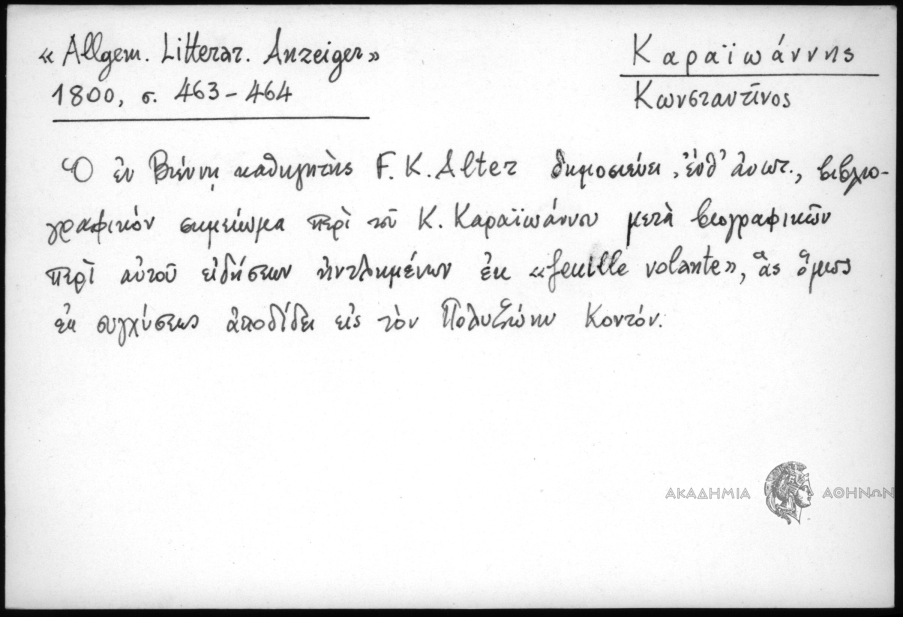 «Allgem. Litterar. Anzeiger»
1800, σ. 463-464
Καραϊωάννης
Κωνσταντῖνος
Ὁ ἐν Βιέννῃ καθηγητὴς F. K. Alter δημοσιεύει, ἔνθ' ἀνωτ., βιβλιο-
γραφικὸν σημείωμα περὶ τοῦ Κ. Καραϊωάννου μετὰ βιογραφικῶν
περὶ αὐτοῦ εἰδήσεων ἠντλημένων ἐκ «feuille volante», ἃς ὅμως
ἐκ συγχύσεως ἀποδίδει εἰς τὸν Πολυζώην Κοντόν.
ΑΚΑΔΗΜΙΑ ΑΘΗΝΩΝ